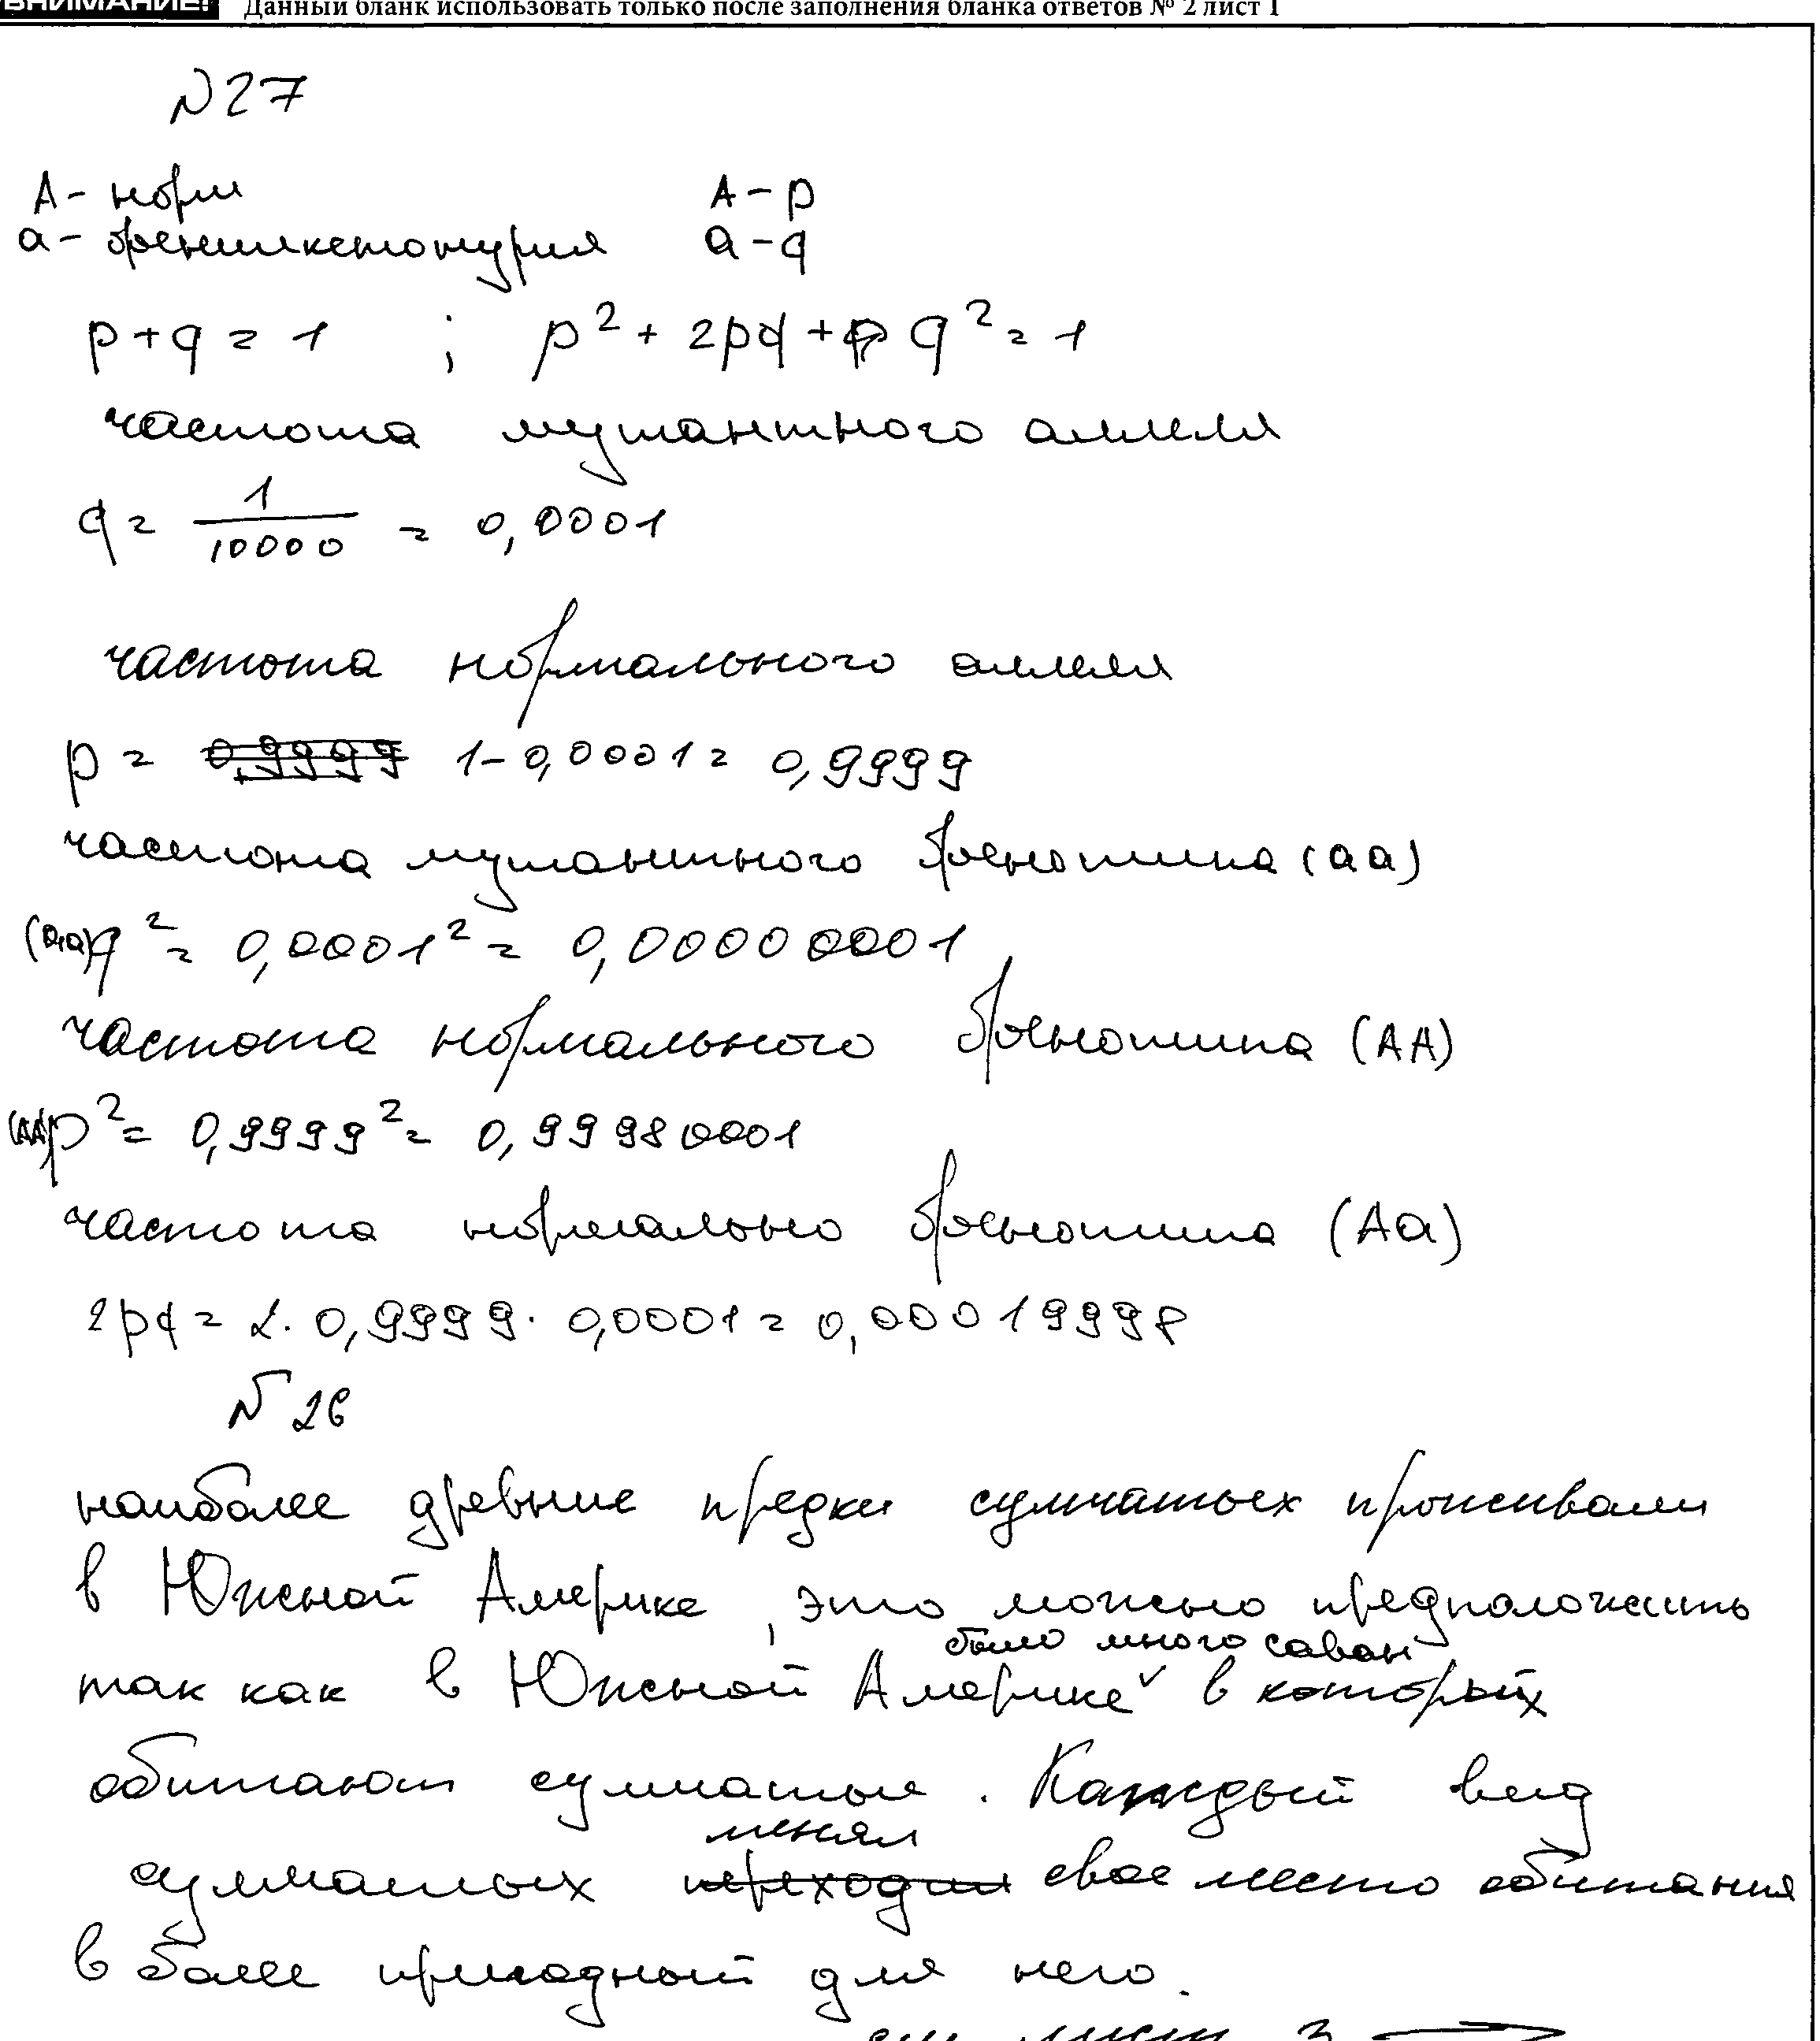 ВНИМАНИЕ! Данный бланк использовать только после заполнения бланка ответов № 2 лист 1
N27
А - норм A - p
а - фенилкетонурия a - q
p + q = 1 ; p² + 2pq + q² = 1
частота мутантного аллеля
q = 1/10000 = 0,0001
частота нормального аллеля
p = 0,9999 1 - 0,0001 = 0,9999
частота мутантного фенотипа (аа)
(аа)q² = 0,0001² = 0,00000001
частота нормального фенотипа (АА)
(АА)p² = 0,9999² = 0,99980001
частота нормально фенотипа (Аа)
2pq = 2 · 0,9999 · 0,0001 = 0,00019998
N 26
наиболее древние предки сумчатых проживали
в Южной Америке, это можно предположить
было много саван
так как в Южной Америке ˅ в которых
обитают сумчатые. Каждый вид
менял
сумчатых переходил свое место обитания
в более пригодный для него.
см лист 3 →